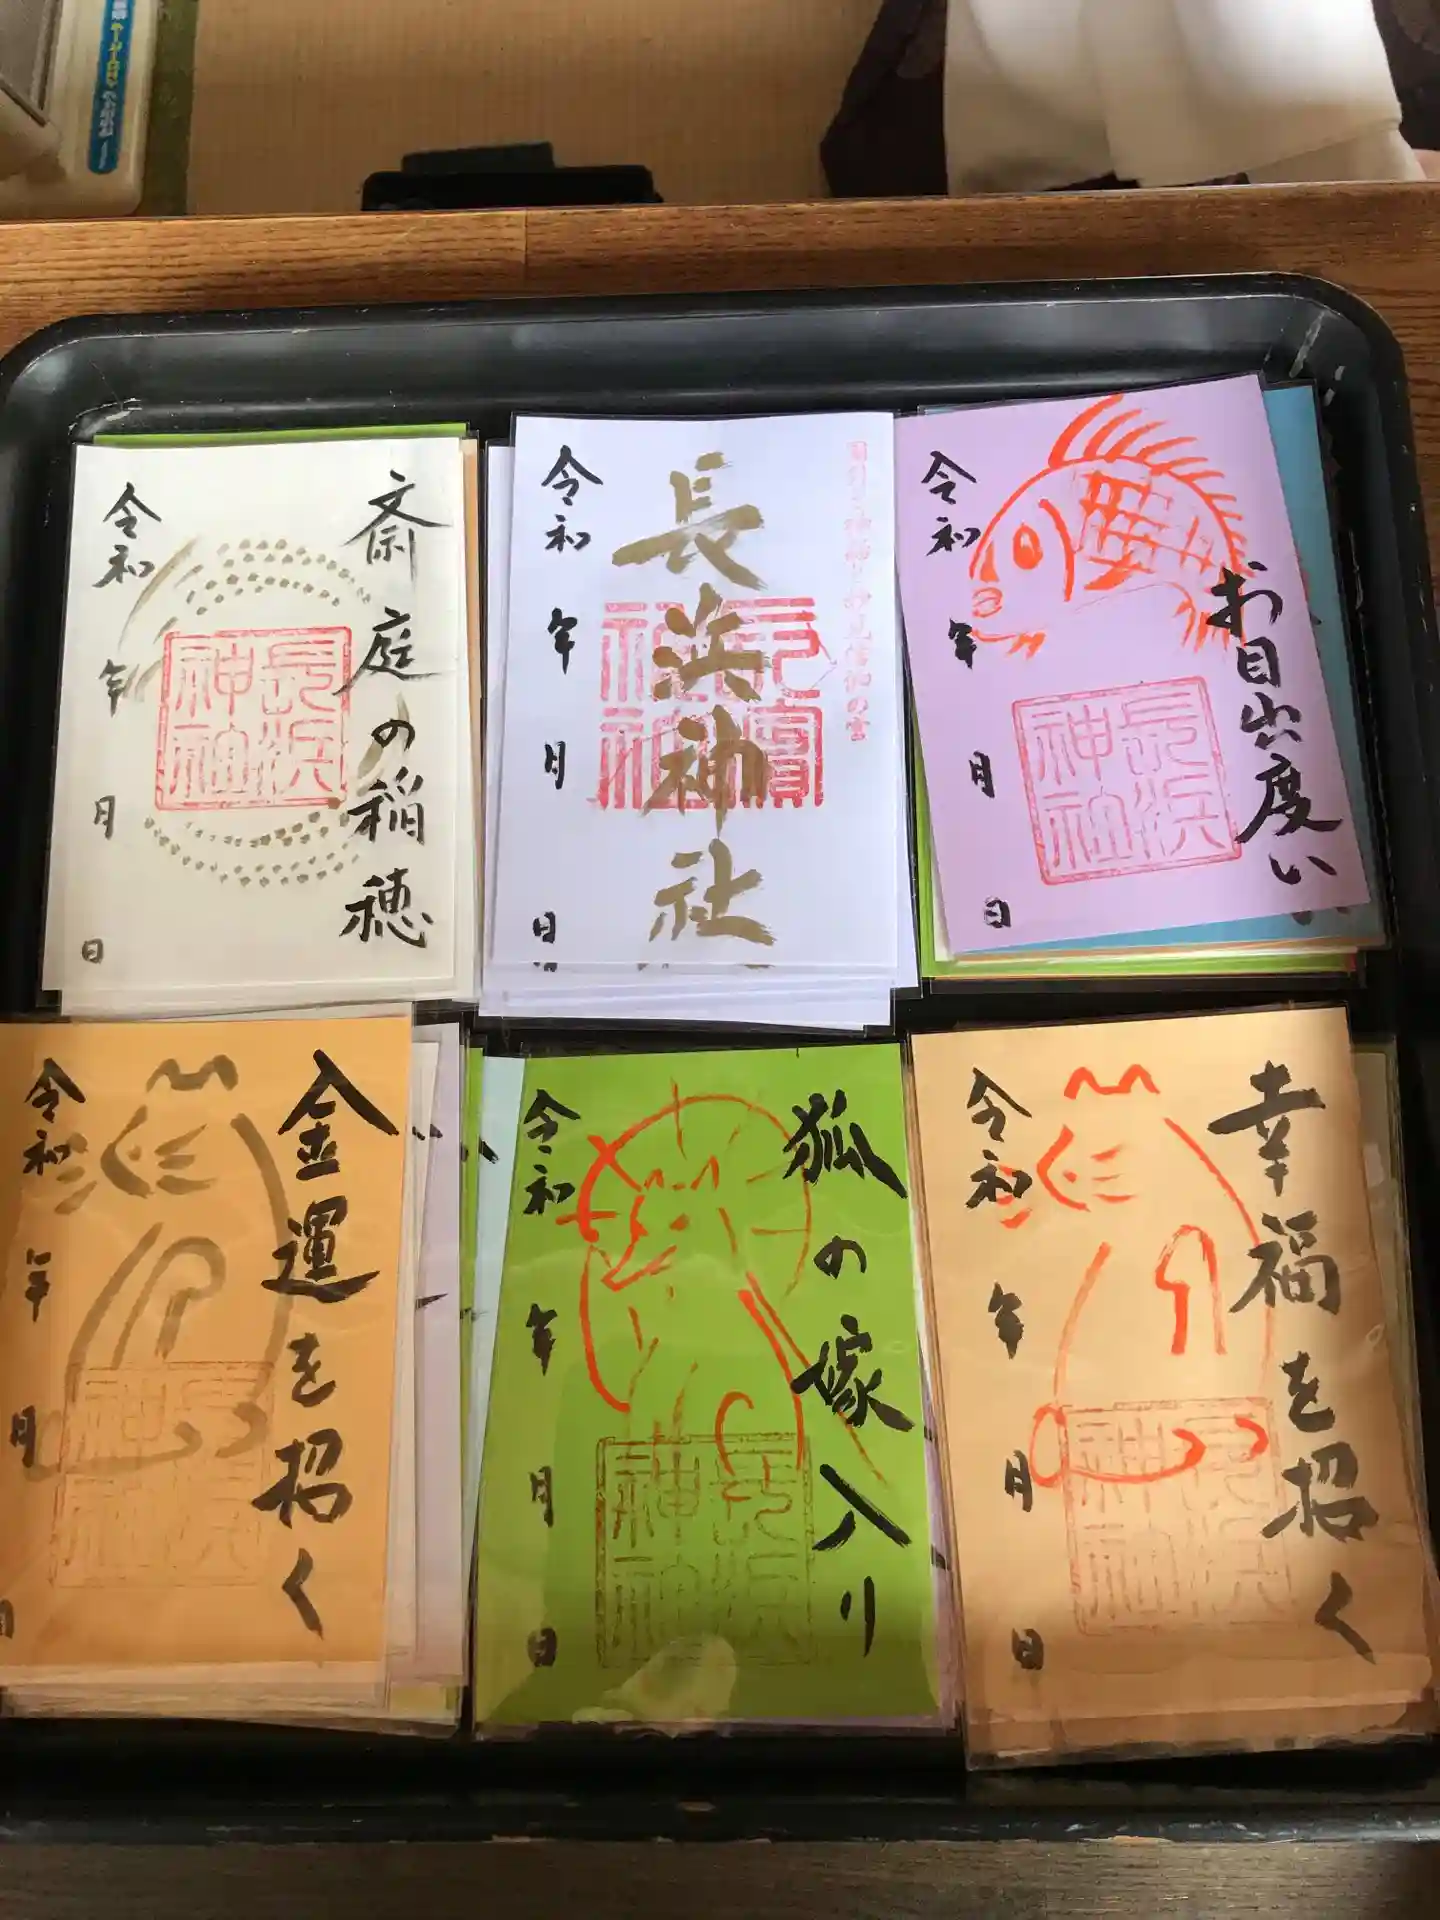 斎庭の稲穂
令和 年 月 日
長浜神社
長浜神社
令和 年 月 日
お目出度い
令和 年 月 日
長浜神社
金運を招く
令和 年 月 日
長浜神社
狐の嫁入り
令和 年 月 日
長浜神社
幸福を招く
令和 年 月 日
長浜神社